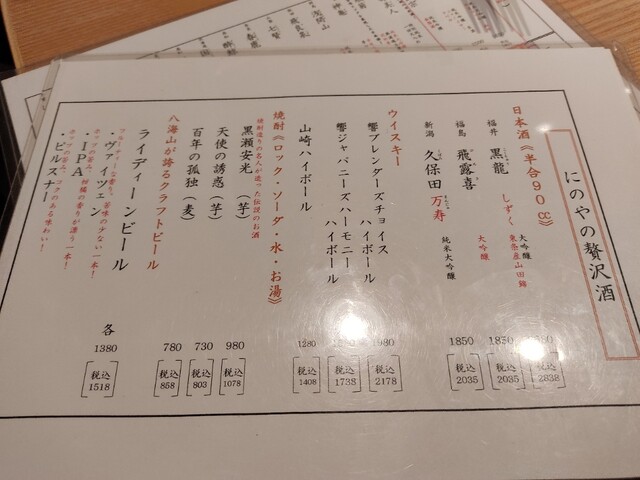 にのやの贅沢酒
日本酒《半合90cc》
福井 黒龍 しずく 大吟醸 東条産山田錦
2838
福島 飛露喜 大吟醸
1850 税込 2035
新潟 久保田 万寿 純米大吟醸
1850 税込 2035
ウイスキー
響ブレンダーズチョイス ハイボール
税込 2178
響ジャパニーズハーモニー ハイボール
税込 1738
山崎ハイボール
1280 税込 1408
焼酎《ロック・ソーダ・水・お湯》
焼酎造りの名人が造った伝説のお酒
黒瀬安光 (芋)
980 税込 1078
天使の誘惑 (芋)
730 税込 803
百年の孤独 (麦)
780 税込 858
八海山が誇るクラフトビール
ライディーンビール
各 1380 税込 1518
フルーティーな香り、苦味の少ない一本!
・ヴァイツェン
ホップの苦み、柑橘の香りが漂う一本!
・IPA
ホップの苦み、コクのある味わい!
・ピルスナー